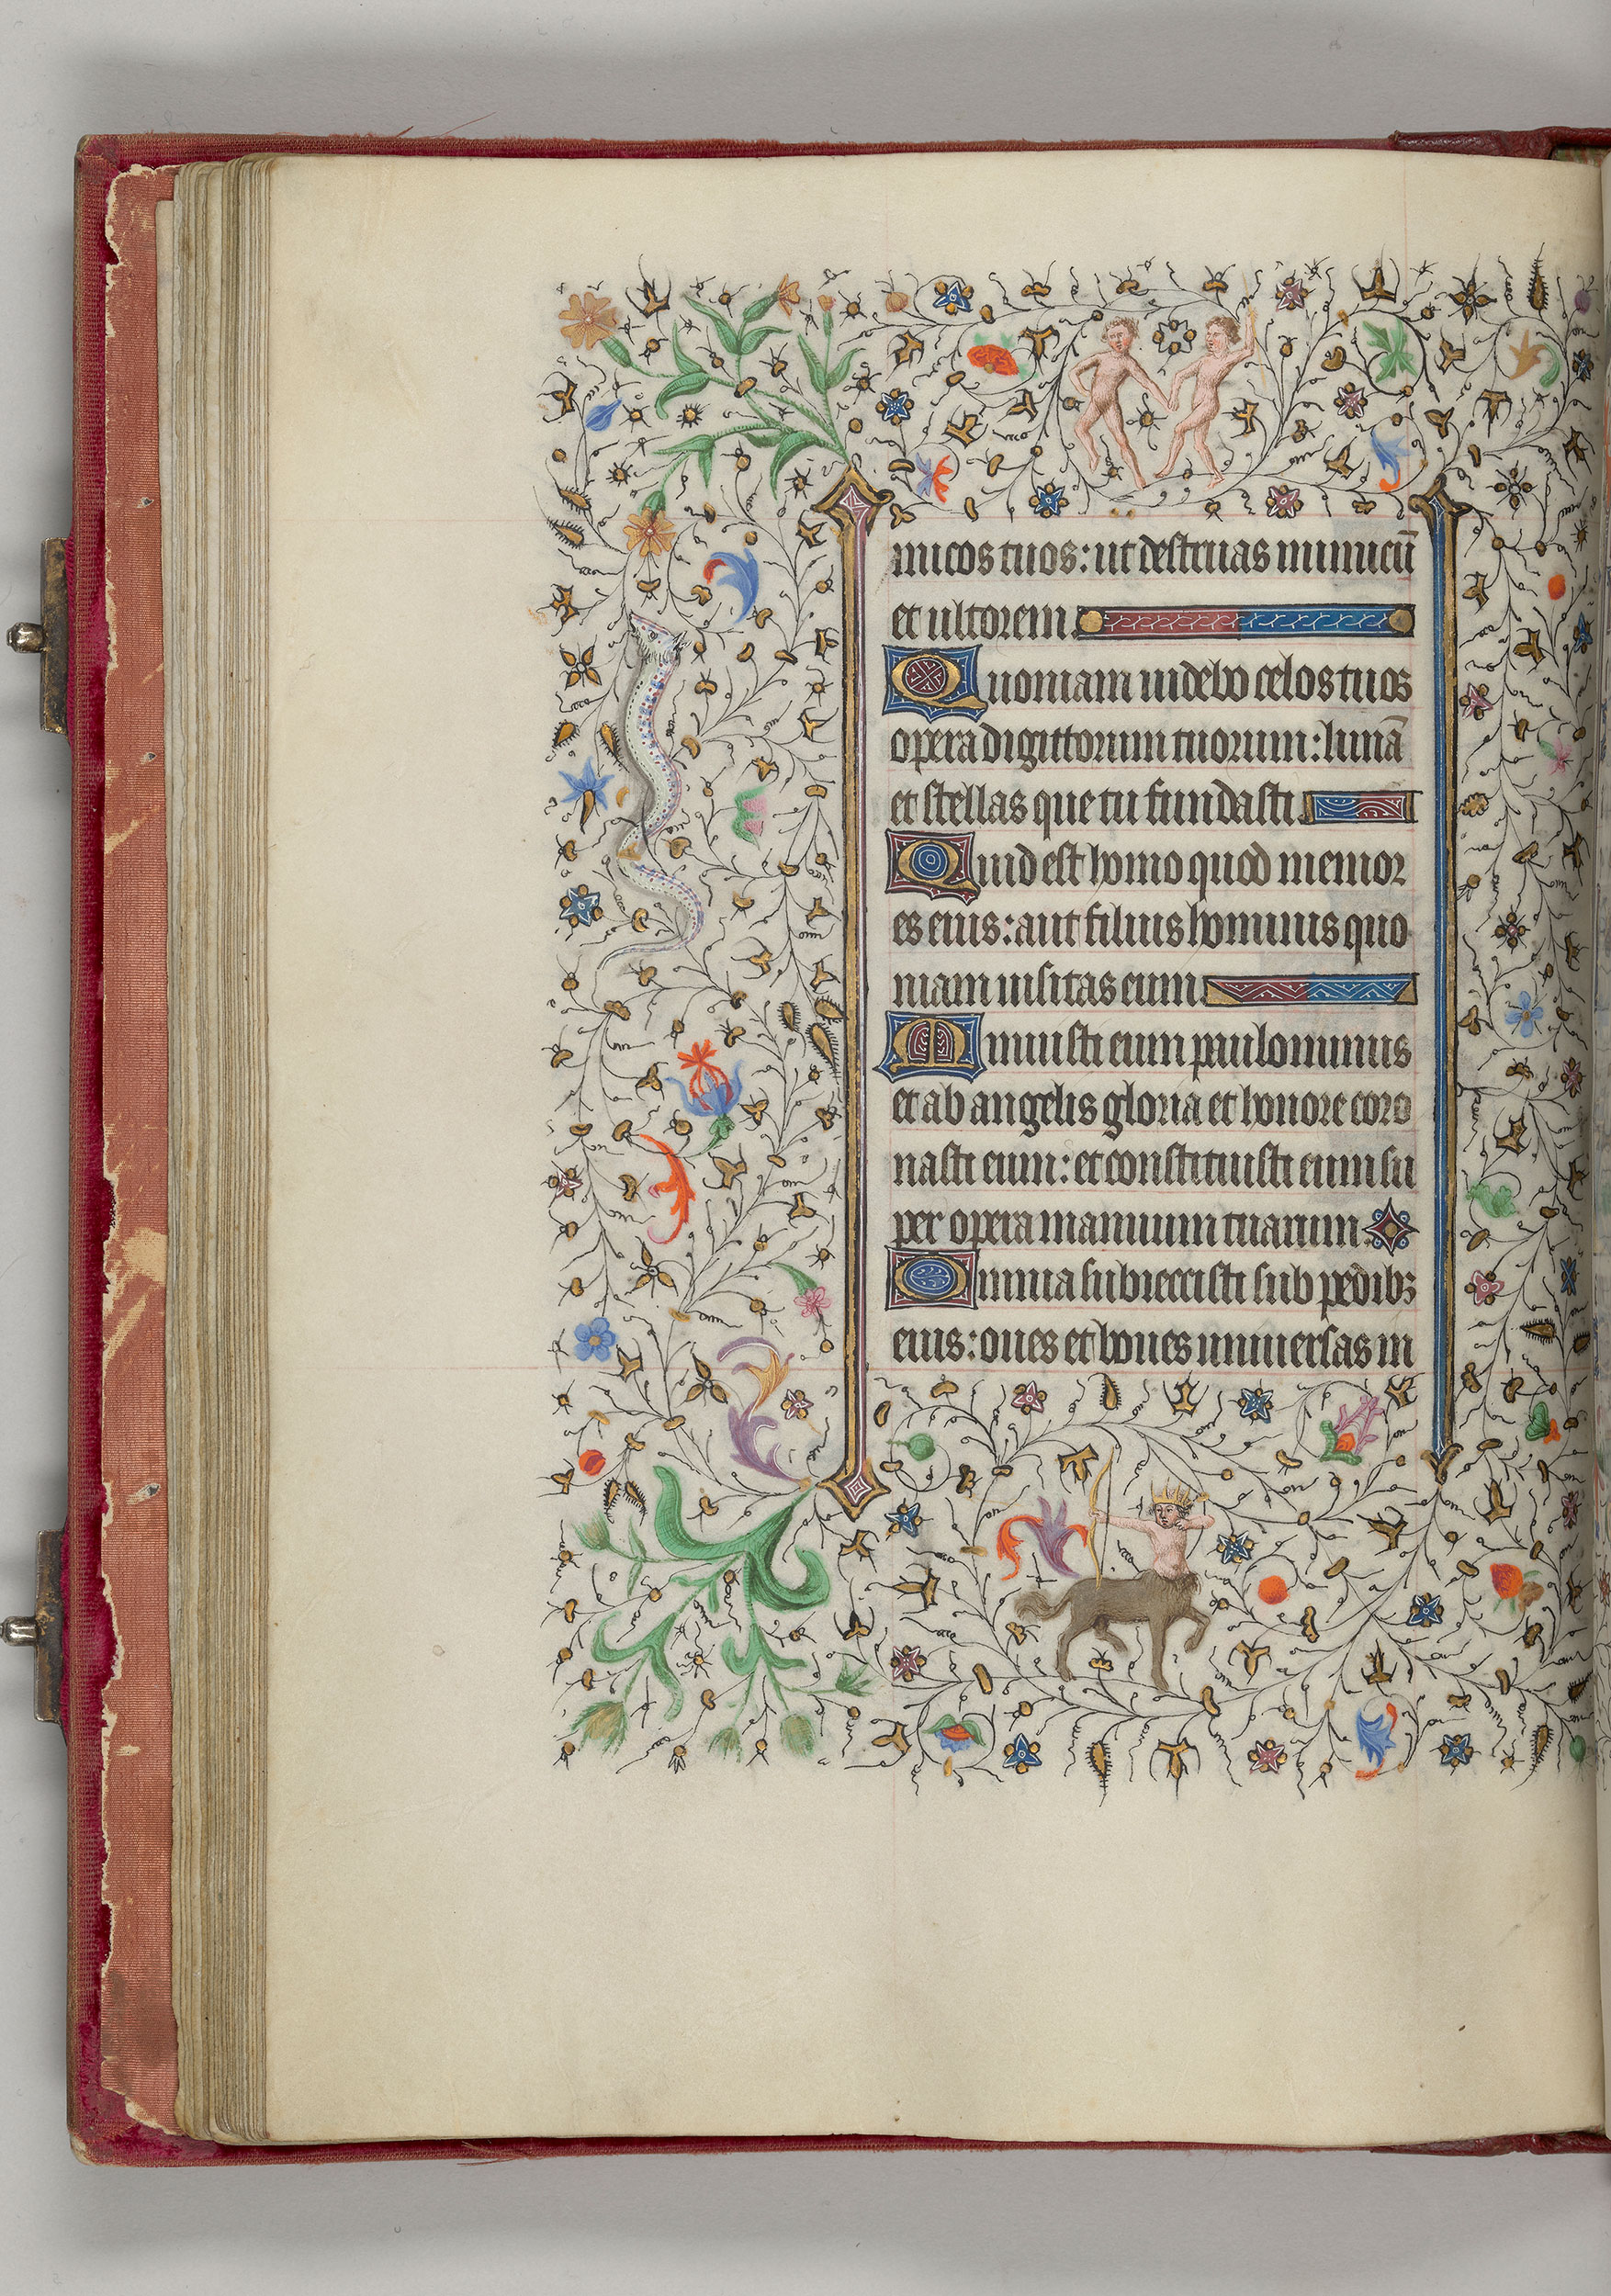 micos tuos: ut destruas inimicū
et ultorem
Quoniam uidebo celos tuos
opera digittorum tuorum: lunā
et stellas que tu fundasti
Quid est homo quod memor
es eius: aut filius hominis quo
niam uisitas eum
Minuisti eum paulominus
et ab angelis gloria et honore coro
nasti eum: et constituisti eum su
per opera manuum tuarum
Omnia subieccisti sub pedibꝫ
eius: oues et boues uniuersas in